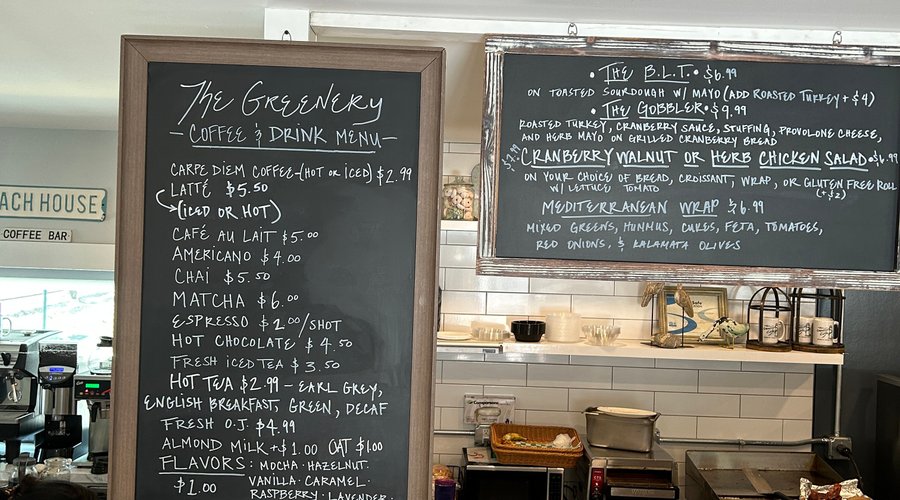 The Greenery
- Coffee & Drink Menu -
Carpe Diem Coffee - (Hot or Iced) $2.99
Latté $5.50
(Iced or Hot)
Café au Lait $5.00
Americano $4.00
Chai $5.50
Matcha $6.00
Espresso $2.00/shot
Hot Chocolate $4.50
Fresh Iced Tea $3.50
Hot Tea $2.99 - Earl Grey,
English Breakfast, Green, Decaf
Fresh O.J. $4.99
Almond Milk +$1.00 Oat $1.00
Flavors: Mocha · Hazelnut ·
$1.00 Vanilla · Caramel ·
Raspberry · Lavender ·
• The B.L.T. • $6.99
on Toasted Sourdough w/ Mayo (Add Roasted Turkey + $4)
• The Gobbler • $9.99
Roasted Turkey, Cranberry Sauce, Stuffing, Provolone Cheese,
and Herb Mayo on Grilled Cranberry Bread
Cranberry Walnut or Herb Chicken Salad • $6.99
on your choice of Bread, Croissant, Wrap, or Gluten Free Roll
w/ Lettuce Tomato (+$2)
Mediterranean Wrap $6.99
Mixed Greens, Hummus, Cukes, Feta, Tomatoes,
Red Onions, & Kalamata Olives
ACH HOUSE
COFFEE BAR